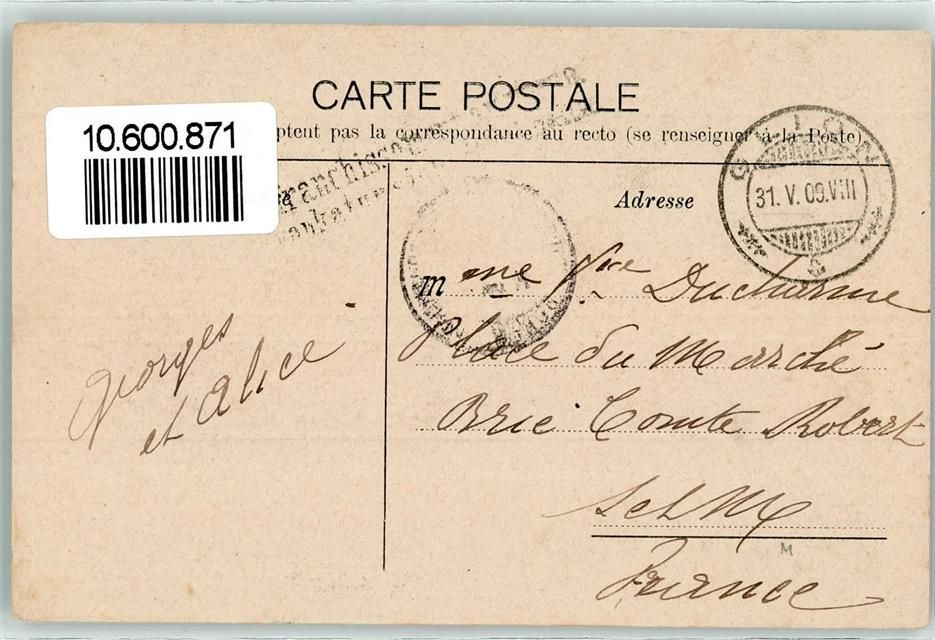 CARTE POSTALE
10.600.871
ptent pas la correspondance au recto (se renseigner à la Poste)
Adresse
GLION
31. V. 09. VIII
Mme Vve Ducharme
Place du Marché
Brie Comte Robert
S et M
France
M
Georges
et Alice